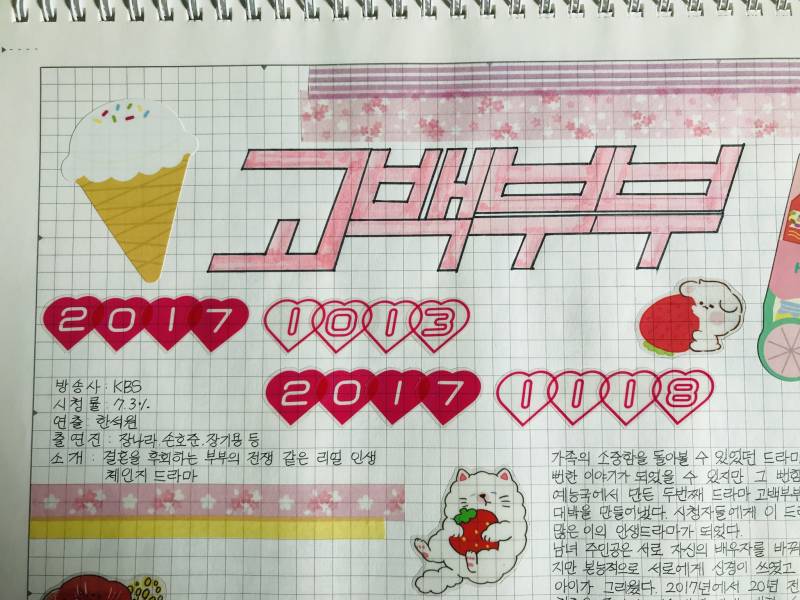 고백부부
2017 1013
2017 1118
방송사 : KBS
시청률 : 7.3%
연출 : 한석원
출연진 : 장나라 손호준 장기용 등
소개 : 결혼을 후회하는 부부의 전쟁 같은 리얼 인생
체인지 드라마
가족의 소중함을 돌아볼 수 있었던 드라마
뻔한 이야기가 되었을 수 있지만 그 뻔함
예능국에서 만든 두번째 드라마 고백부부
대박을 만들어냈다. 시청자들에게 이 드라
많은 이의 인생드라마가 되었다.
남녀 주인공은 서로 자신의 배우자를 바꿔
지만 본능적으로 서로에게 신경이 쓰였고
아이가 그리웠다. 2017년에서 20년 전